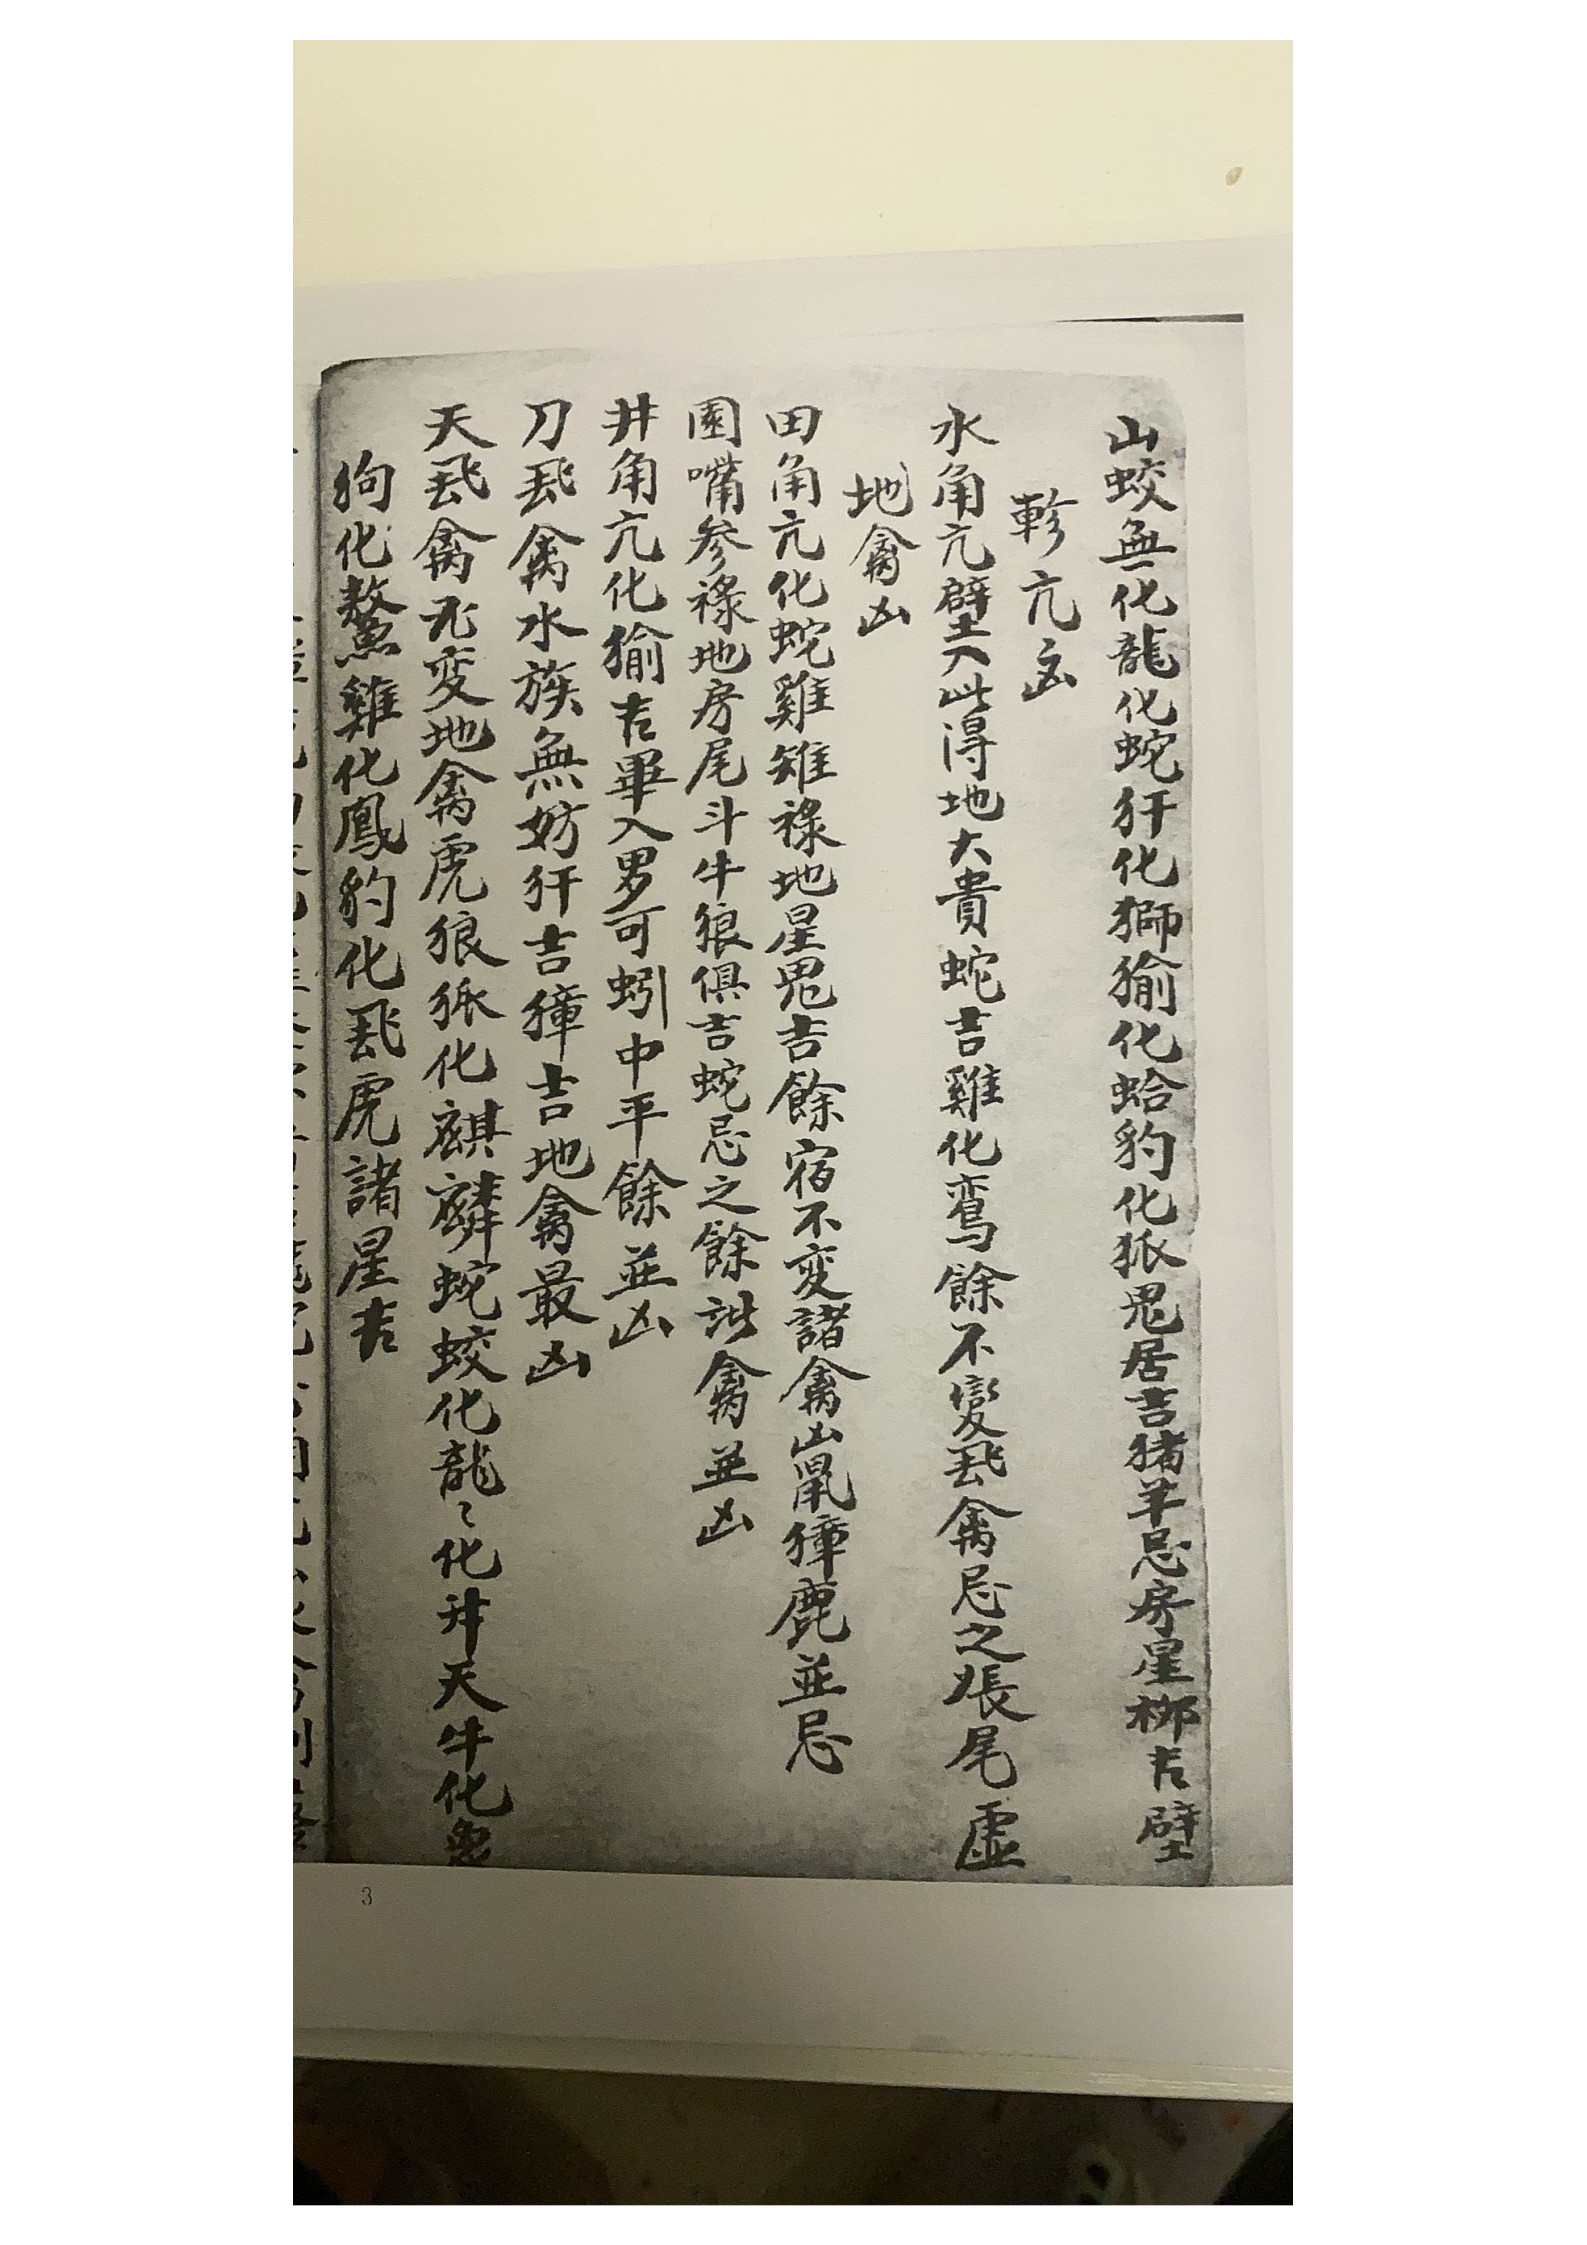 山蛟無化龍化蛇犴化獅㺄化蛤豹化狐鬼居吉猪羊忌房星柳吉壁
軫亢凶
水角亢壁入此得地大貴蛇吉雞化鸾餘不變飛禽忌之張尾虛
地禽凶
田角亢化蛇雞雉祿地星鬼吉餘宿不变諸禽山鼠獐鹿並忌
園嘴参祿地房尾斗牛狼俱吉蛇忌之餘諸禽並凶
井角亢化㺄吉畢入男可蚓中平餘並凶
刀飛禽水族無妨犴吉獐吉地禽最凶
天飛禽不变地禽虎狼狐化麒麟蛇蛟化龍〻化升天牛化
狗化鰲雞化鳳豹化飛虎諸星吉
3